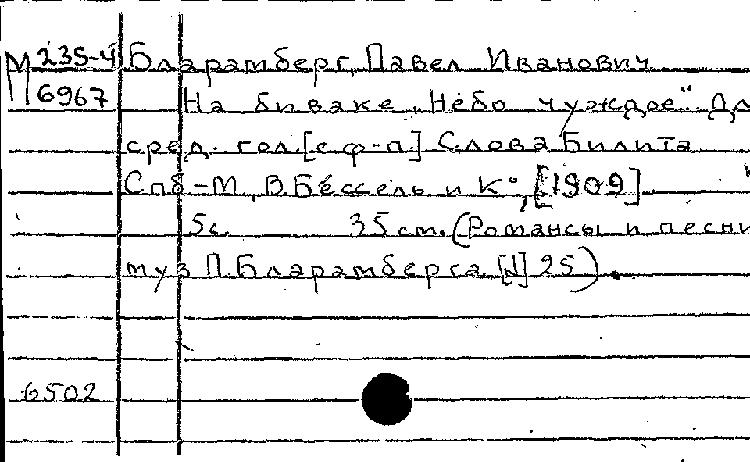 М 235-4 Бларамберг, Павел Иванович
6967 На биваке „Небо чуждое" Дл
сред. гол. [с ф-п] Слова Билита
Спб-М, В. Бессель и К°, [1909]
5с. 35 см. (Романсы и песни
муз П. Бларамберга [N] 25).
6502